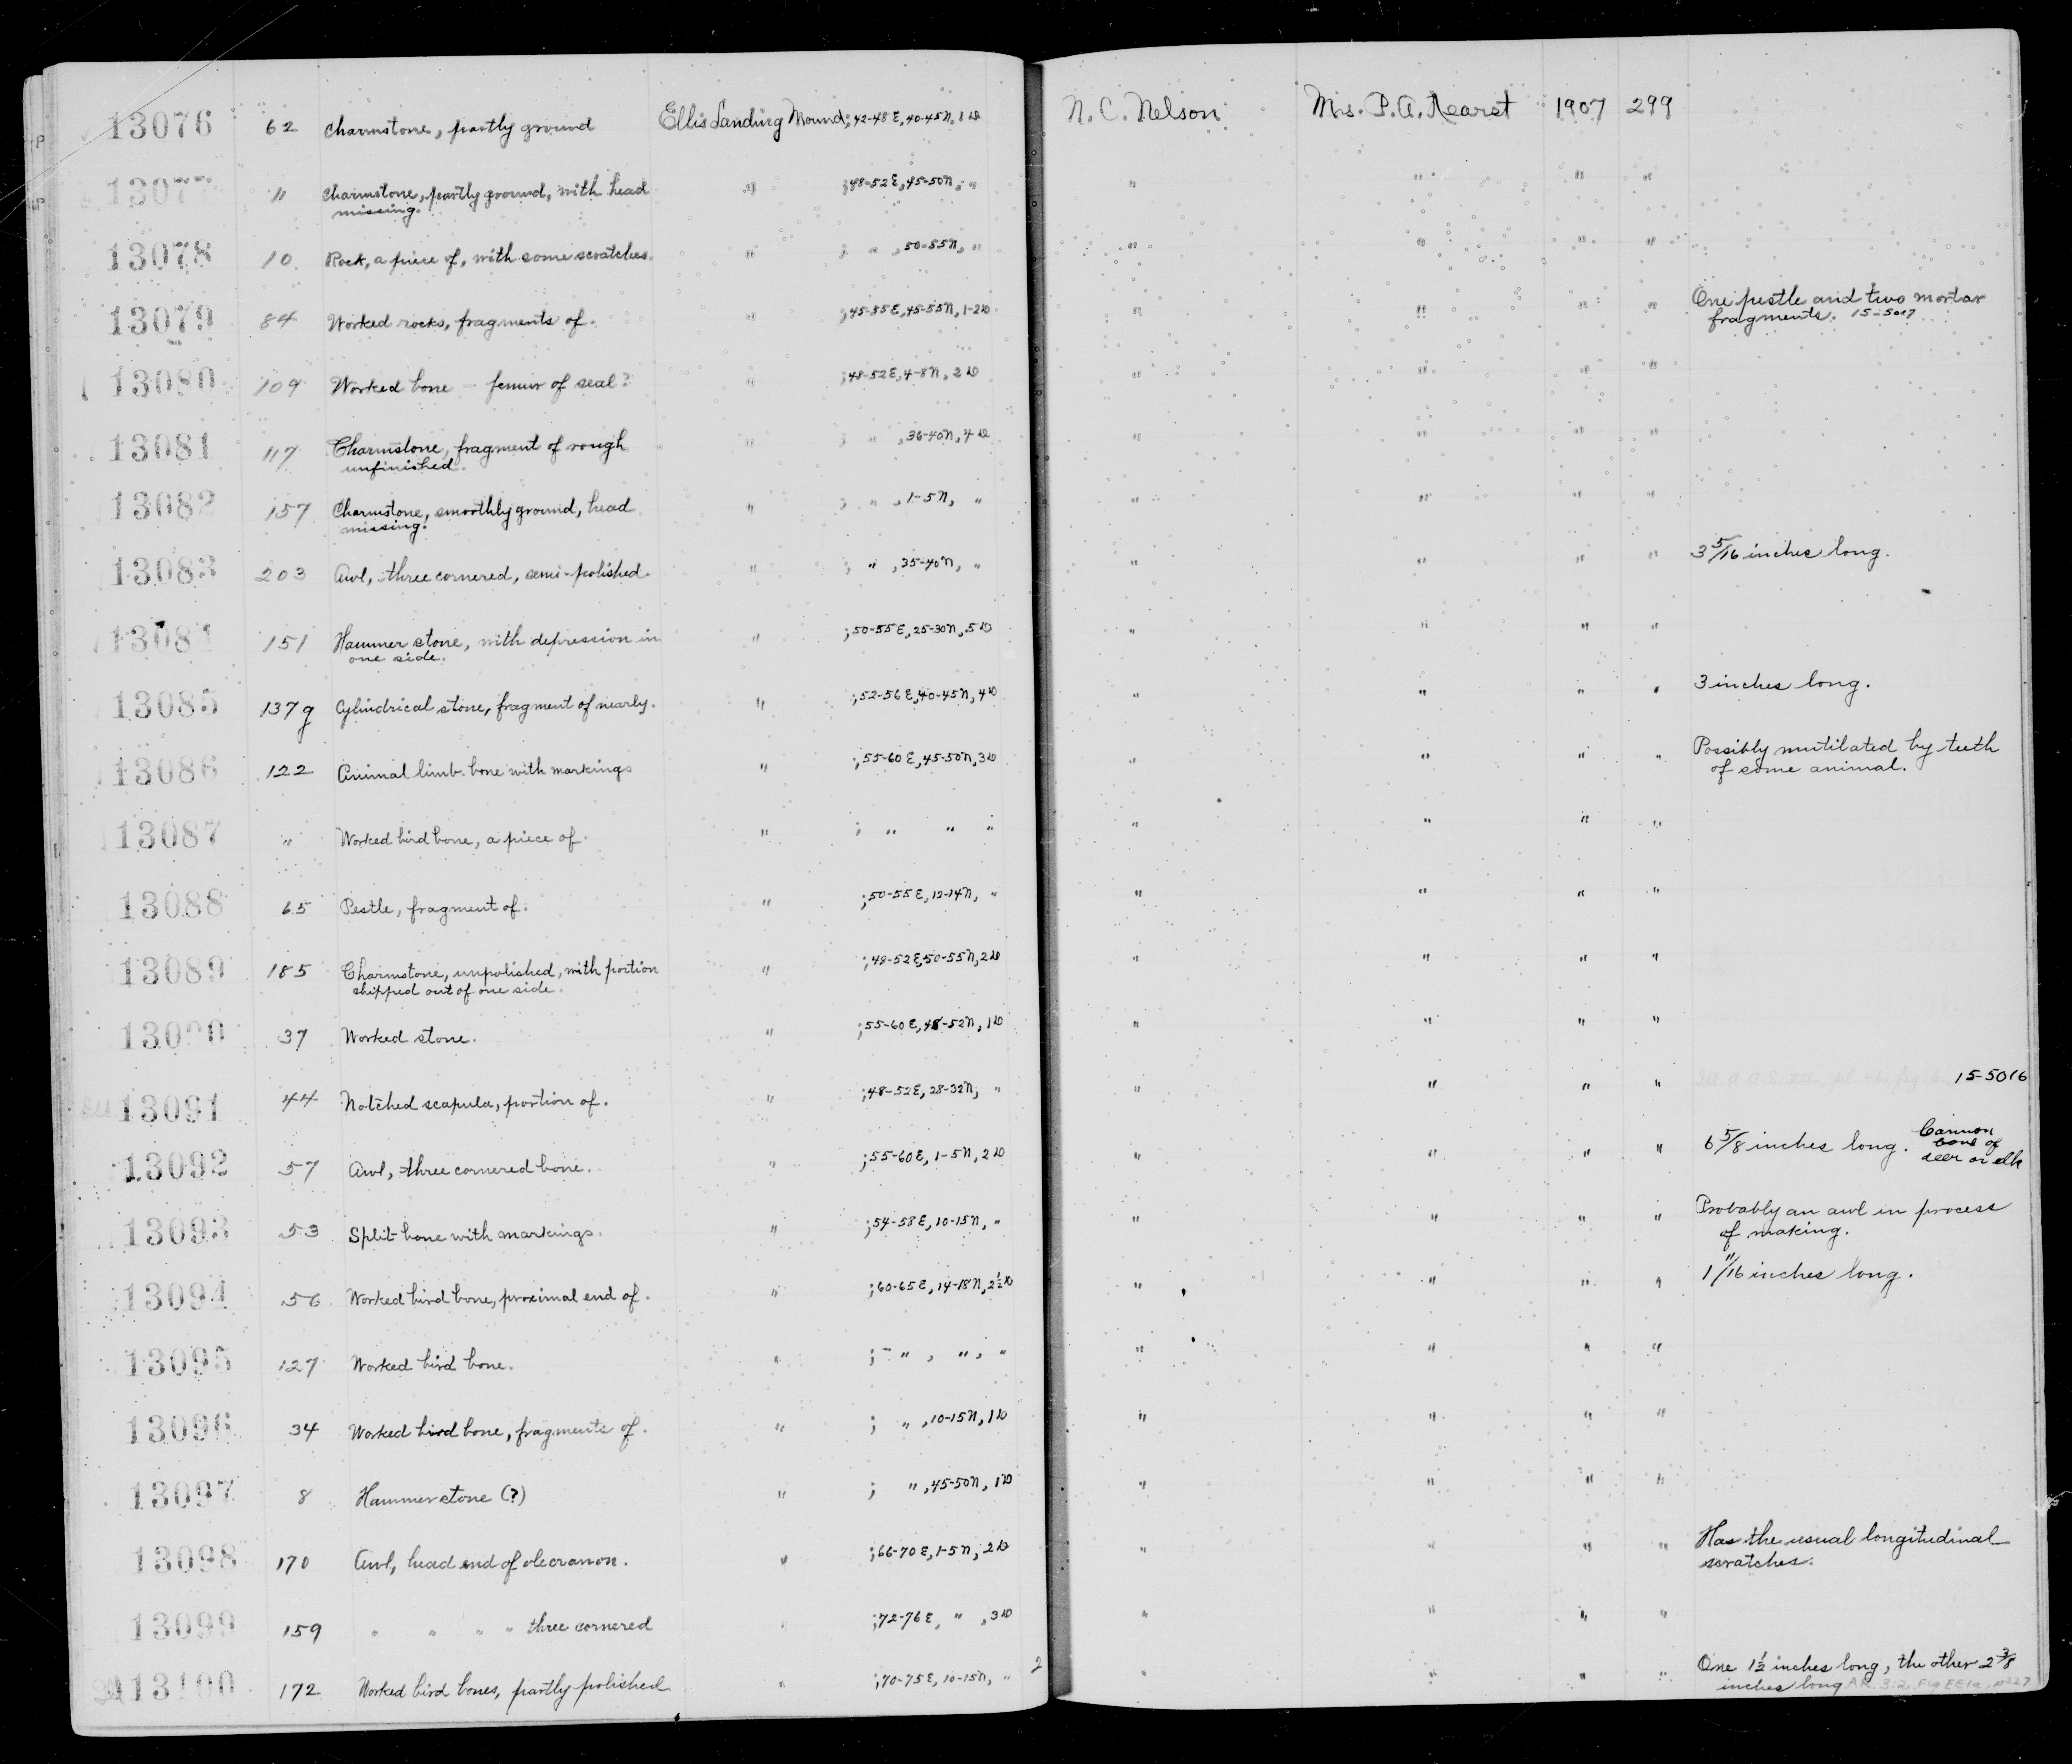 13076 62 Charmstone, partly ground Ellis Landing Mound; 42-48 E, 40-45 N, 1 D N. C. Nelson Mrs. P. A. Hearst 1907 299
13077 " Charmstone, partly ground, with head " ; 48-52 E, 45-50 N, ; " " " " "
missing.
13078 10 Rock, a piece of, with some scratches. " ; " , 50-55 N, " " " " "
13079 84 Worked rocks, fragments of. " ; 45-55 E, 45-55 N, 1-2 D " " " " One pestle and two mortar
fragments. 15-5017
13080 109 Worked bone - femur of seal? " ; 48-52 E, 4-8 N, 2 D " " " "
13081 117 Charmstone, fragment of rough " ; " , 36-40 N, 4 D " " " "
unfinished.
13082 157 Charmstone, smoothly ground, head " ; " , 1-5 N, " " " " "
missing.
13083 203 Awl, three cornered, semi-polished. " ; " , 35-40 N, " " " " " 3 5/16 inches long.
13084 151 Hammer stone, with depression in " ; 50-55 E, 25-30 N, 5 D " " " "
one side.
13085 137g Cylindrical stone, fragment of nearly. " ; 52-56 E, 40-45 N, 4 D " " " " 3 inches long.
13086 122 Animal limb bone with markings " ; 55-60 E, 45-50 N, 3 D " " " " Possibly mutilated by teeth
of some animal.
13087 " Worked bird bone, a piece of. " ; " " " " " " "
13088 65 Pestle, fragment of. " ; 50-55 E, 12-14 N, " " " " "
13089 185 Charmstone, unpolished, with portion " ; 48-52 E, 50-55 N, 2 D " " " "
chipped out of one side.
13090 37 Worked stone. " ; 55-60 E, 48-52 N, 1 D " " " "
13091 44 Notched scapula, portion of. " ; 48-52 E, 28-32 N, " " " " " 15-5016
13092 57 Awl, three cornered bone. " ; 55-60 E, 1-5 N, 2 D " " " " 6 5/8 inches long. Cannon
bone of
deer or elk
13093 53 Split bone with markings. " ; 54-58 E, 10-15 N, " " " " " Probably an awl in process
of making.
13094 56 Worked bird bone, proximal end of. " ; 60-65 E, 14-18 N, 2 1/2 D " " " " 1 11/16 inches long.
13095 127 Worked bird bone. " ; " , " , " " " " "
13096 34 Worked bird bone, fragments of. " ; " , 10-15 N, 1 D " " " "
13097 8 Hammerstone (?) " ; " , 45-50 N, 1 D " " " "
13098 170 Awl, head end of olecranon. " ; 66-70 E, 1-5 N, 2 D " " " " Has the usual longitudinal
scratches.
13099 159 " " " " three cornered " ; 72-76 E, " , 3 D " " " "
13100 172 Worked bird bones, partly polished " ; 70-75 E, 10-15 N, " 2 " " " " One 1 1/2 inches long, the other 2 3/8
inches long.